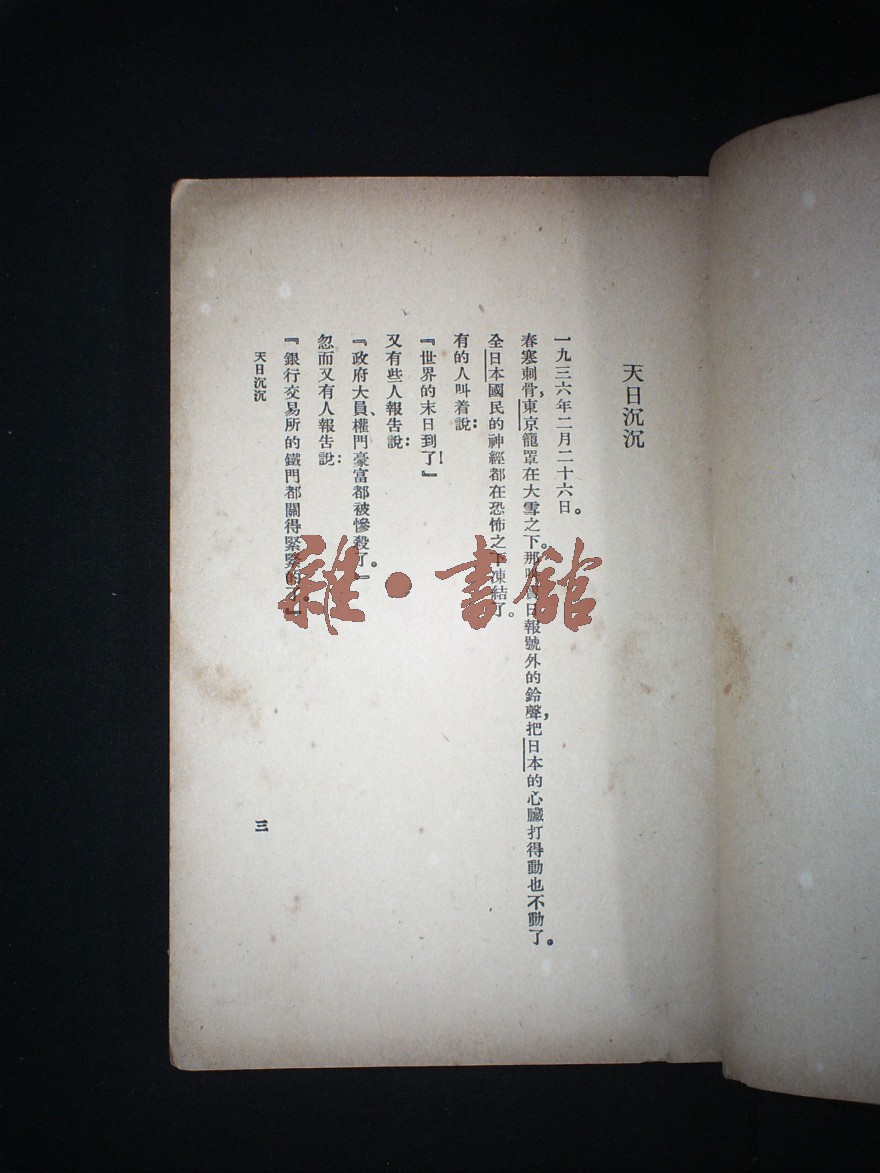 天日沉沉
一九三六年二月二十六日。
春寒刺骨，東京籠罩在大雪之下。那日報號外的鈴聲，把日本的心臟打得動也不動了。
全日本國民的神經都在恐怖之下凍結了。
有的人叫着說：
『世界的末日到了！』
又有些人報告說：
『政府大員、權門豪富都被慘殺了。』
忽而又有人報告說：
『銀行交易所的鐵門都關得緊緊的了。』
天日沉沉
三
雜·書館